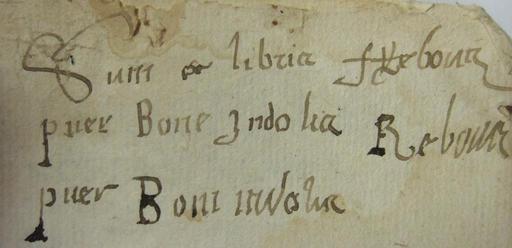 Sum ex libris ffrebours
puer Bone Indolis Rebours
puer Boni indolis